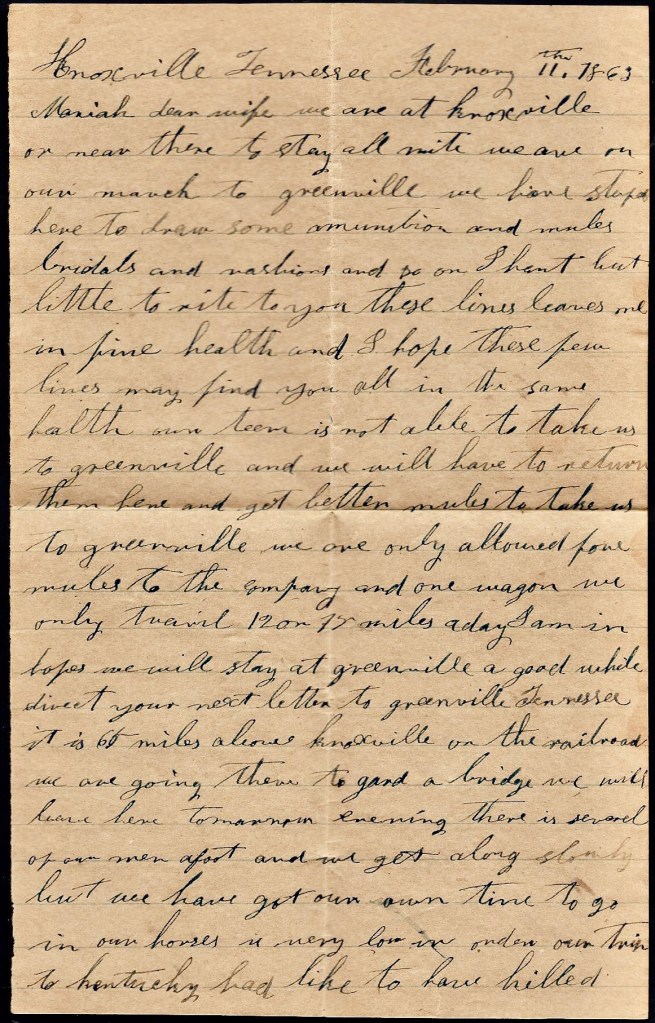 Knoxville Tennessee February 11.th 1863
Mariah dear wife we are at knoxville
or near there to stay all nite we are on
our march to greenville we have stopd
here to draw some amunition and mules
bridals and rashions and so on I hant but
little to rite to you these lines leaves me
in fine health and I hope these few
lines may find you all in the same
health our teem is not able to take us
to greenville and we will have to return
them here and get better mules to take us
to greenville we are only allowed fore
mules to the company and one wagon we
only travil 12 or 15 miles a day I am in
hopes we will stay at greenville a good while
direct your next letter to greenville Tennessee
it is miles above knoxville on the railroad
we are going there to gard a bridge we will
leave here tomarrow evening there is several
of our men afoot and we get along slowly
but we have got our own time to go
in our horses is very low in order our trip
to kentucky had like to have killed